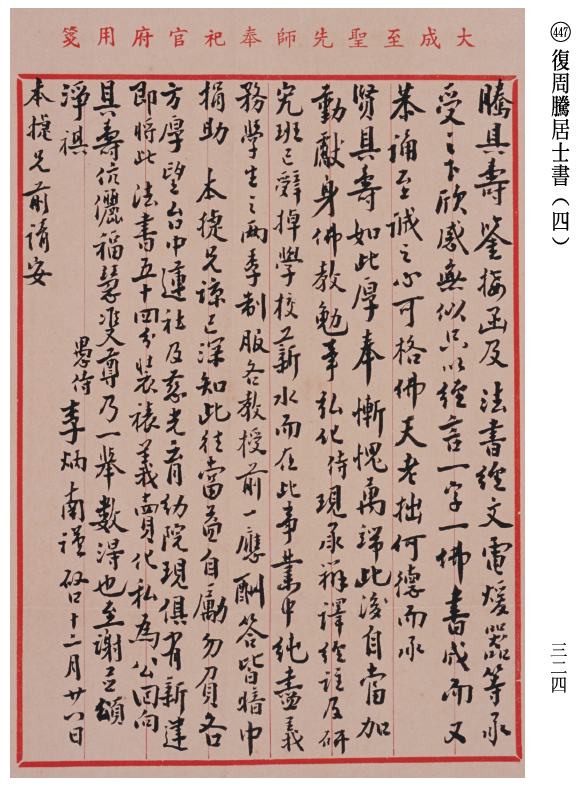 ㊼ 復周騰居士書（四）
三二四
大成至聖先師奉祀官府用箋
騰具壽鑒接函及 法書經文電煖器等承
受之下欣感無似只以經言一字一佛書成而又
恭誦至誠之心可格佛天老拙何德而承
賢具壽如此厚奉慚愧萬端此後自當加
勤獻身佛教勉事弘化待現承辦譯經註及研
究班已辭掉學校薪水而在此事業中純盡義
務學生之兩季制服各教授前一應酬答皆暗中
捐助 本捷兄諒已深知此後當益自勵勿負各
方厚望台中蓮社及慈光育幼院現俱有新建
即將此 法書五十四分裝裱義賣化私為公回向
具壽伉儷福慧雙尊乃一舉數得也至謝並頌
淨祺
本捷兄前請安
愚侍
李炳南謹啟十二月廿八日